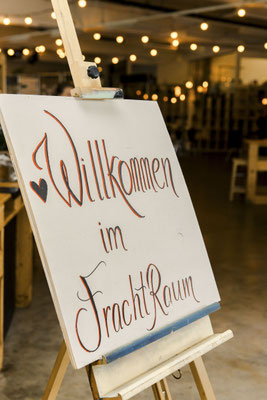 Willkommen
im
FrachtRaum